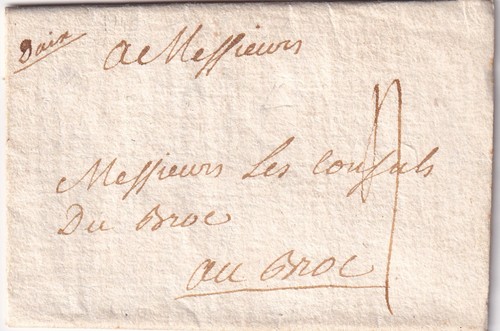 Daix
A Messieurs
Messieurs Les Consuls
Du Broc
au Broc